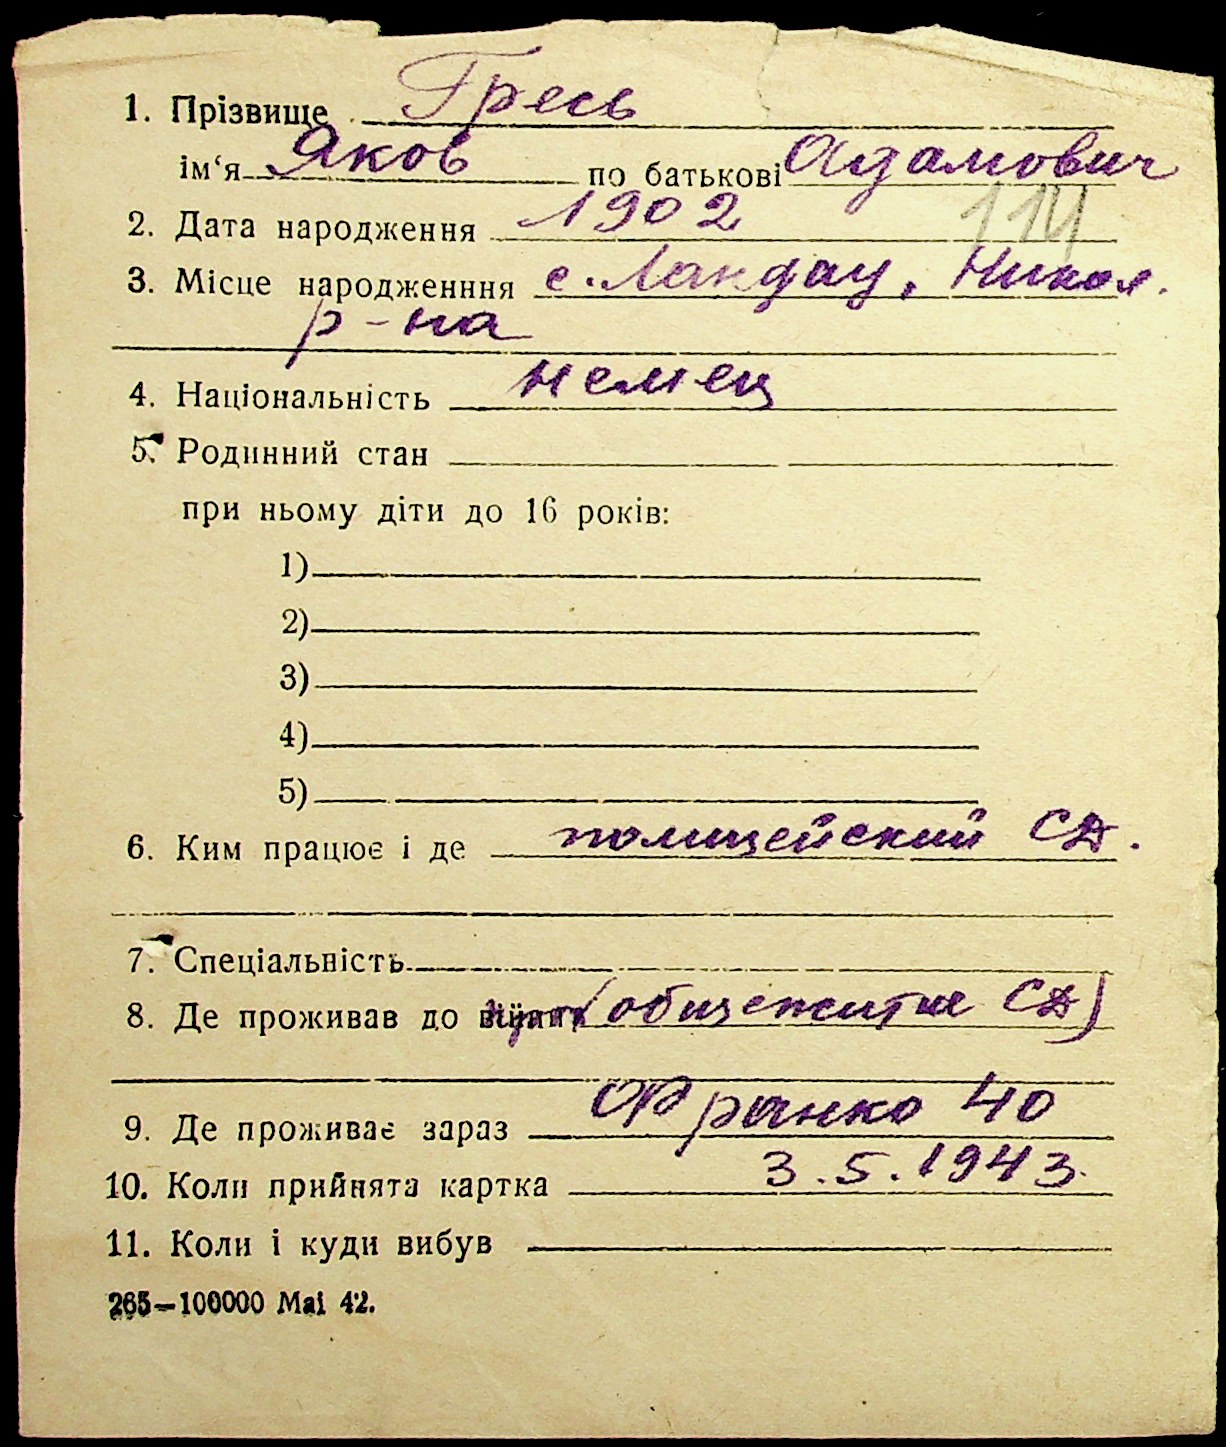 1. Прізвище Гресь
ім‘я Яков по батькові Адамович
2. Дата народження 1902 114
3. Місце народженння с. Ландау, Никол.
р-на
4. Національність немец
5. Родинний стан
при ньому діти до 16 років:
1)
2)
3)
4)
5)
6. Ким працює і де полицейский СД.
7. Спеціальність
8. Де проживав до війни (общежитие СД)
9. Де проживає зараз Франко 40
10. Коли прийнята картка 3.5.1943.
11. Коли і куди вибув
265—100000 Mai 42.